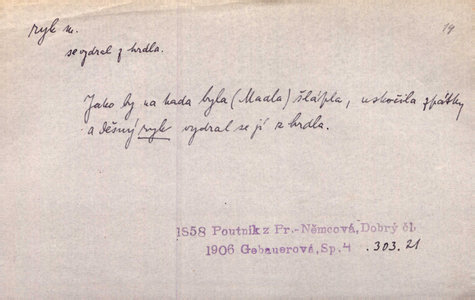 ryk m.
19
se vydral z hrdla.
Jako by na hada byla (Madla) šlápla, uskočila zpátky
a děsný ryk vydral se jí z hrdla.
1858 Poutník z Pr.-Němcová, Dobrý čl.
1906 Gebauerová, Sp. 4 .303.21